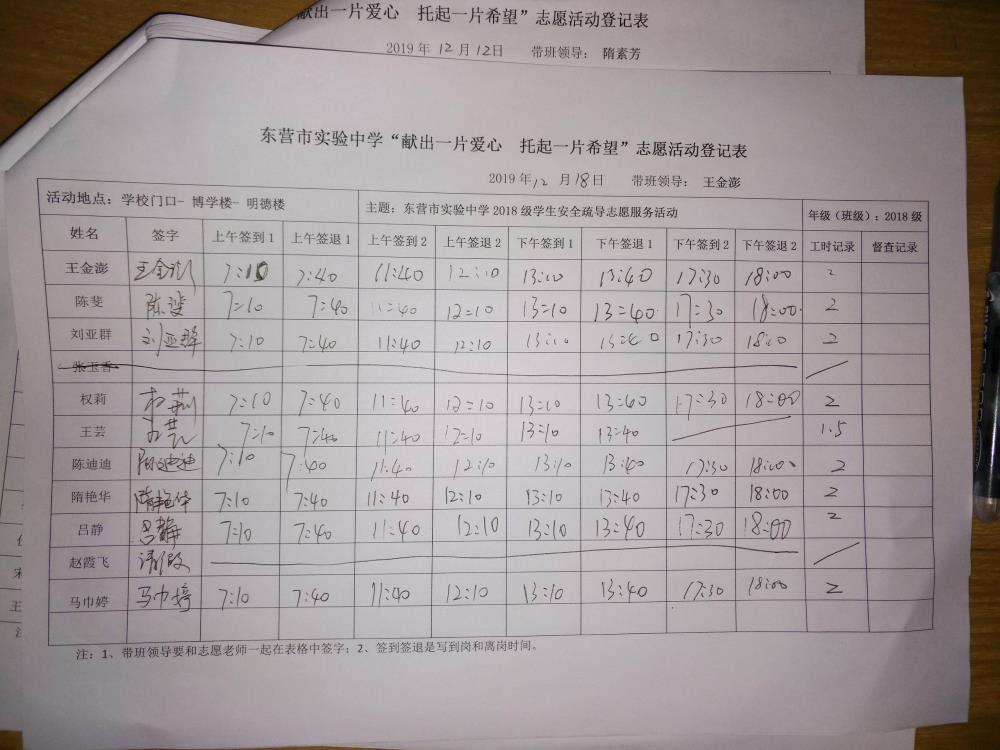 献出一片爱心 托起一片希望”志愿活动登记表
2019年12月12日 带班领导： 隋素芳
东营市实验中学“献出一片爱心 托起一片希望”志愿活动登记表
2019年12月18日 带班领导： 王金澎
活动地点：学校门口- 博学楼- 明德楼 主题：东营市实验中学2018级学生安全疏导志愿服务活动 年级（班级）：2018级
姓名 签字 上午签到1 上午签退1 上午签到2 上午签退2 下午签到1 下午签退1 下午签到2 下午签退2 工时记录 督查记录
王金澎 王金澎 7:10 7:40 11:40 12:10 13:10 13:40 17:30 18:00 2
陈斐 陈斐 7:10 7:40 11:40 12:10 13:10 13:40 17:30 18:00 2
刘亚群 刘亚群 7:10 7:40 11:40 12:10 13:10 13:40 17:30 18:00 2
张玉香
权莉 权莉 7:10 7:40 11:40 12:10 13:10 13:40 17:30 18:00 2
王芸 王芸 7:10 7:40 11:40 12:10 13:10 13:40 1.5
陈迪迪 陈迪迪 7:10 7:40 11:40 12:10 13:10 13:40 17:30 18:00 2
隋艳华 隋艳华 7:10 7:40 11:40 12:10 13:10 13:40 17:30 18:00 2
吕静 吕静 7:10 7:40 11:40 12:10 13:10 13:40 17:30 18:00 2
赵霞飞 请假
马巾婷 马巾婷 7:10 7:40 11:40 12:10 13:10 13:40 17:30 18:00 2
注：1、带班领导要和志愿老师一起在表格中签字；2、签到签退是写到岗和离岗时间。